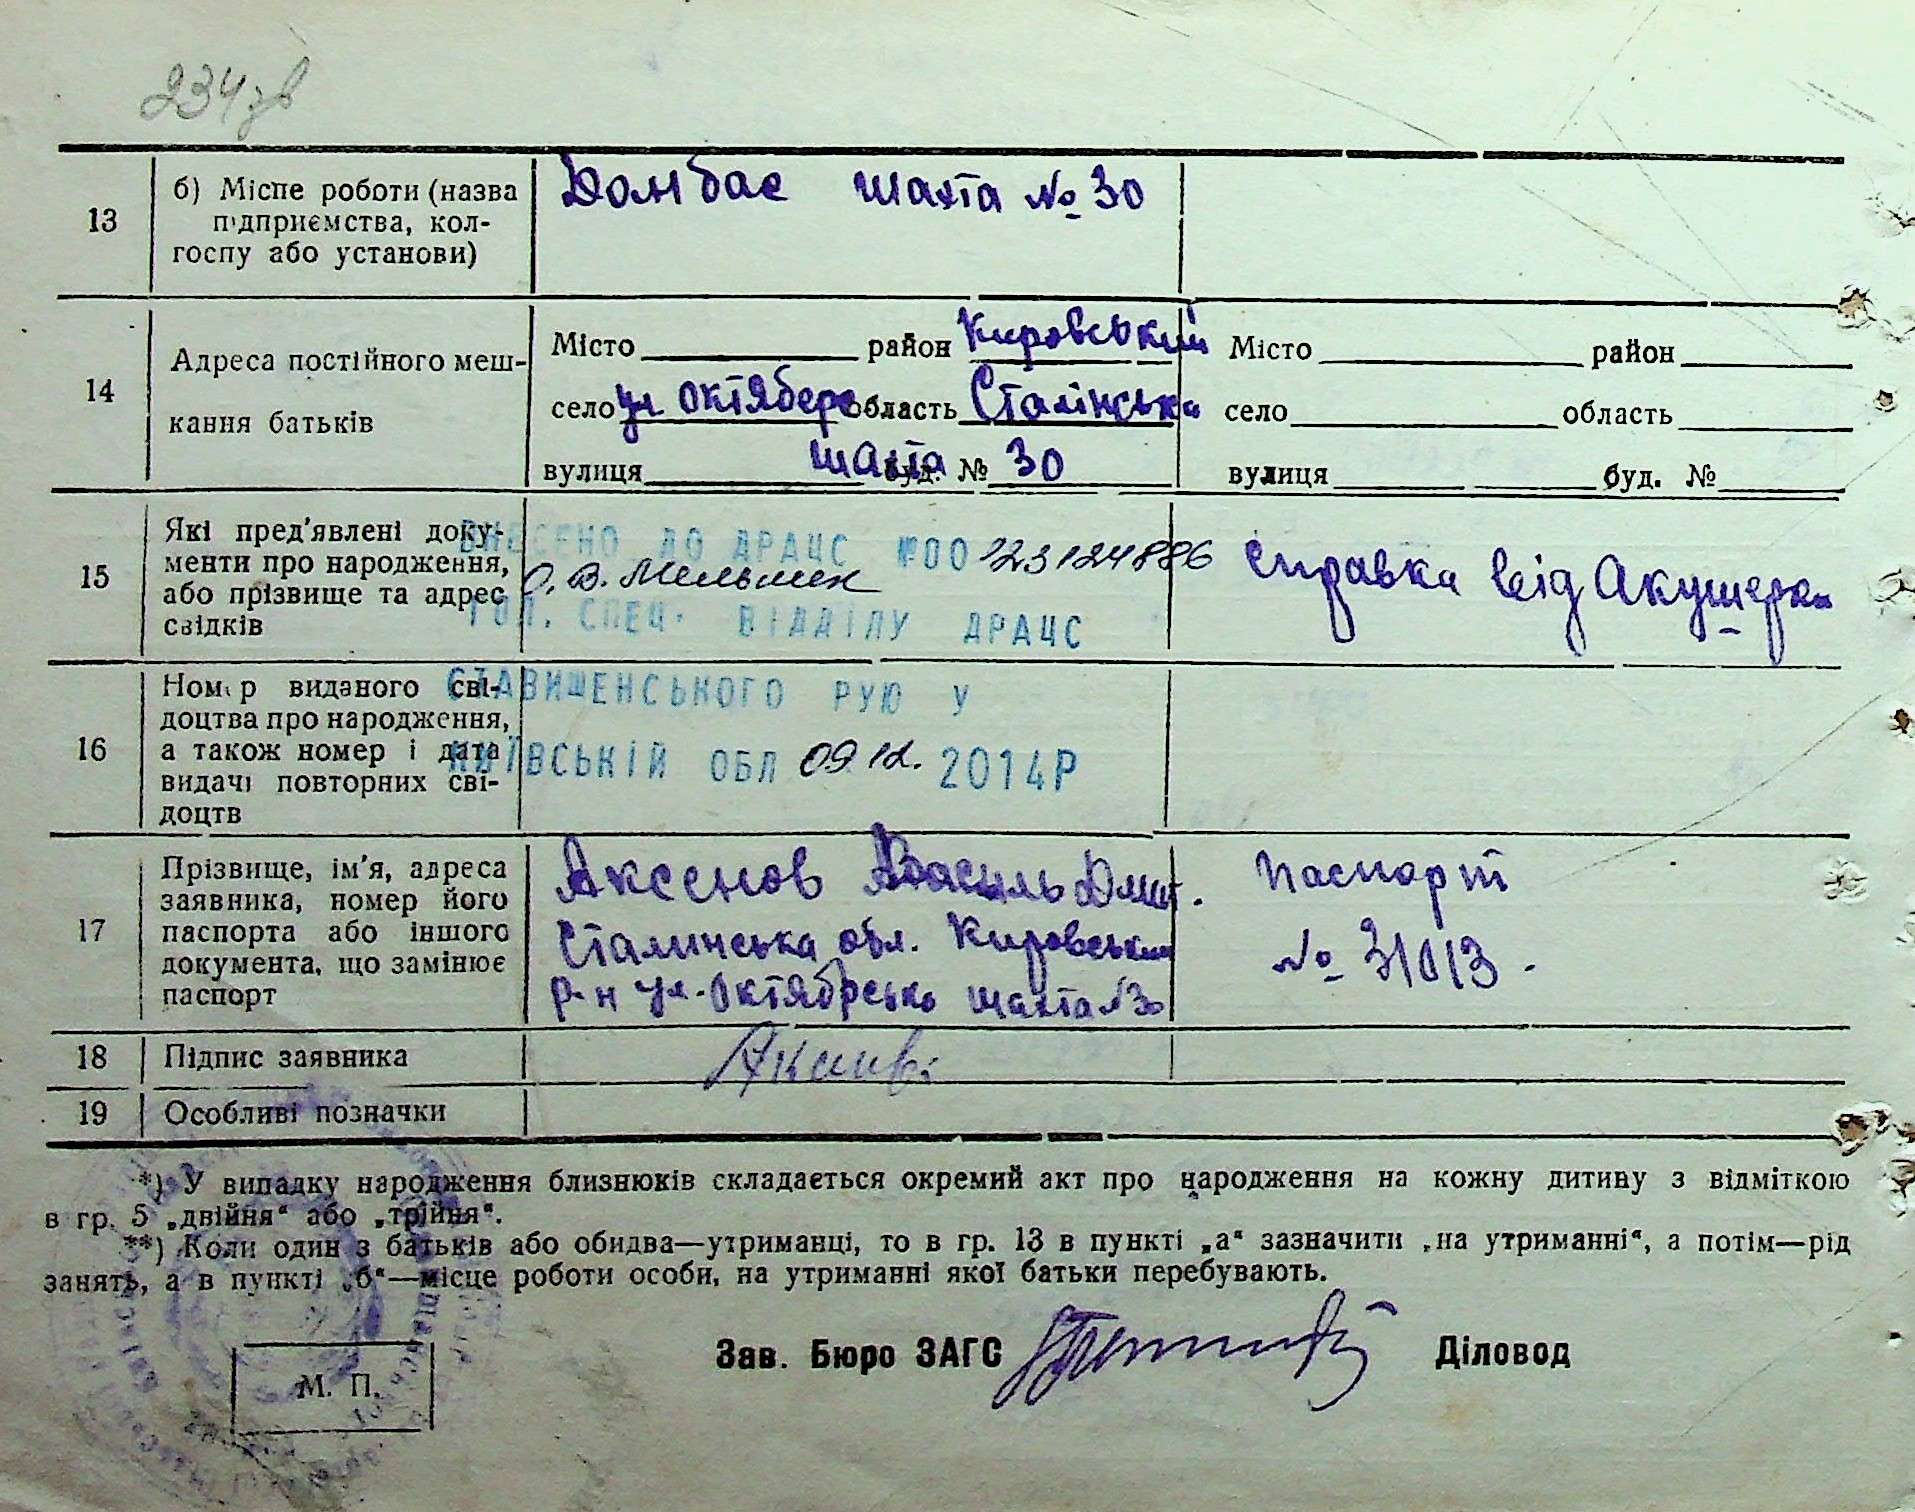 234 зв
13
б) Місце роботи (назва підприємства, колгоспу або установи)
Донбас шахта № 30
14
Адреса постійного мешкання батьків
Місто район Кировський
село ул Октябрс область Сталінська
вулиця шахта буд. № 30
Місто район
село область
вулиця буд. №
15
Які пред'явлені документи про народження, або прізвище та адрес свідків
ВНЕСЕНО ДО ДРАЦС №00123124886
О. В. Мельник
ГОЛ. СПЕЦ. ВІДДІЛУ ДРАЦС
справка від Акушерки
16
Номер виданого свідоцтва про народження, а також номер і дата видачі повторних свідоцтв
СТАВИЩЕНСЬКОГО РУЮ У
КИЇВСЬКІЙ ОБЛ 09 12. 2014Р
17
Прізвище, ім'я, адреса заявника, номер його паспорта або іншого документа, що замінює паспорт
Аксенов Василь Дмит.
Сталинська обл. Кировський
р-н ул. Октябрсько шахта №30
Паспорт
№ 31013.
18
Підпис заявника
19
Особливі позначки
*) У випадку народження близнюків складається окремий акт про народження на кожну дитину з відміткою
в гр. 5 „двійня“ або „трійня“.
**) Коли один з батьків або обидва—утриманці, то в гр. 13 в пункті „а“ зазначити „на утриманні“, а потім—рід
занять, а в пункті „б“—місце роботи особи, на утриманні якої батьки перебувають.
Зав. Бюро ЗАГС Діловод
М. П.